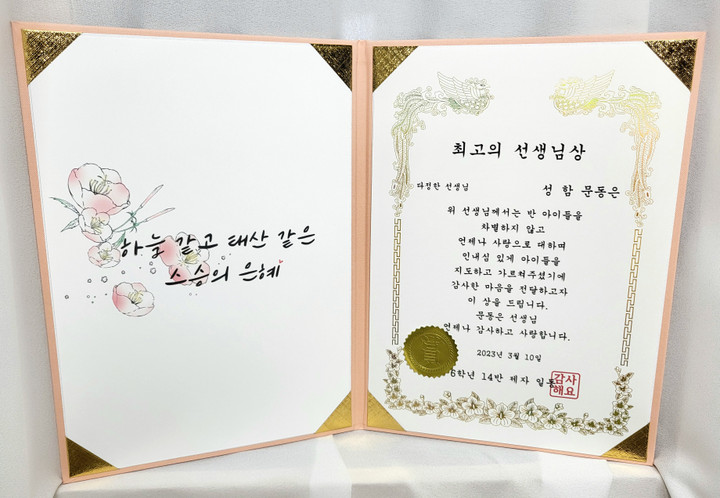 하늘 같고 태산 같은
스승의 은혜
최고의 선생님상
다정한 선생님
성 함 문동은
위 선생님께서는 반 아이들을
차별하지 않고
언제나 사랑으로 대하며
인내심 있게 아이들을
지도하고 가르쳐주셨기에
감사한 마음을 전달하고자
이 상을 드립니다.
문동은 선생님
언제나 감사하고 사랑합니다.
2023년 3월 10일
6학년 14반 제자 일동
감사
해요